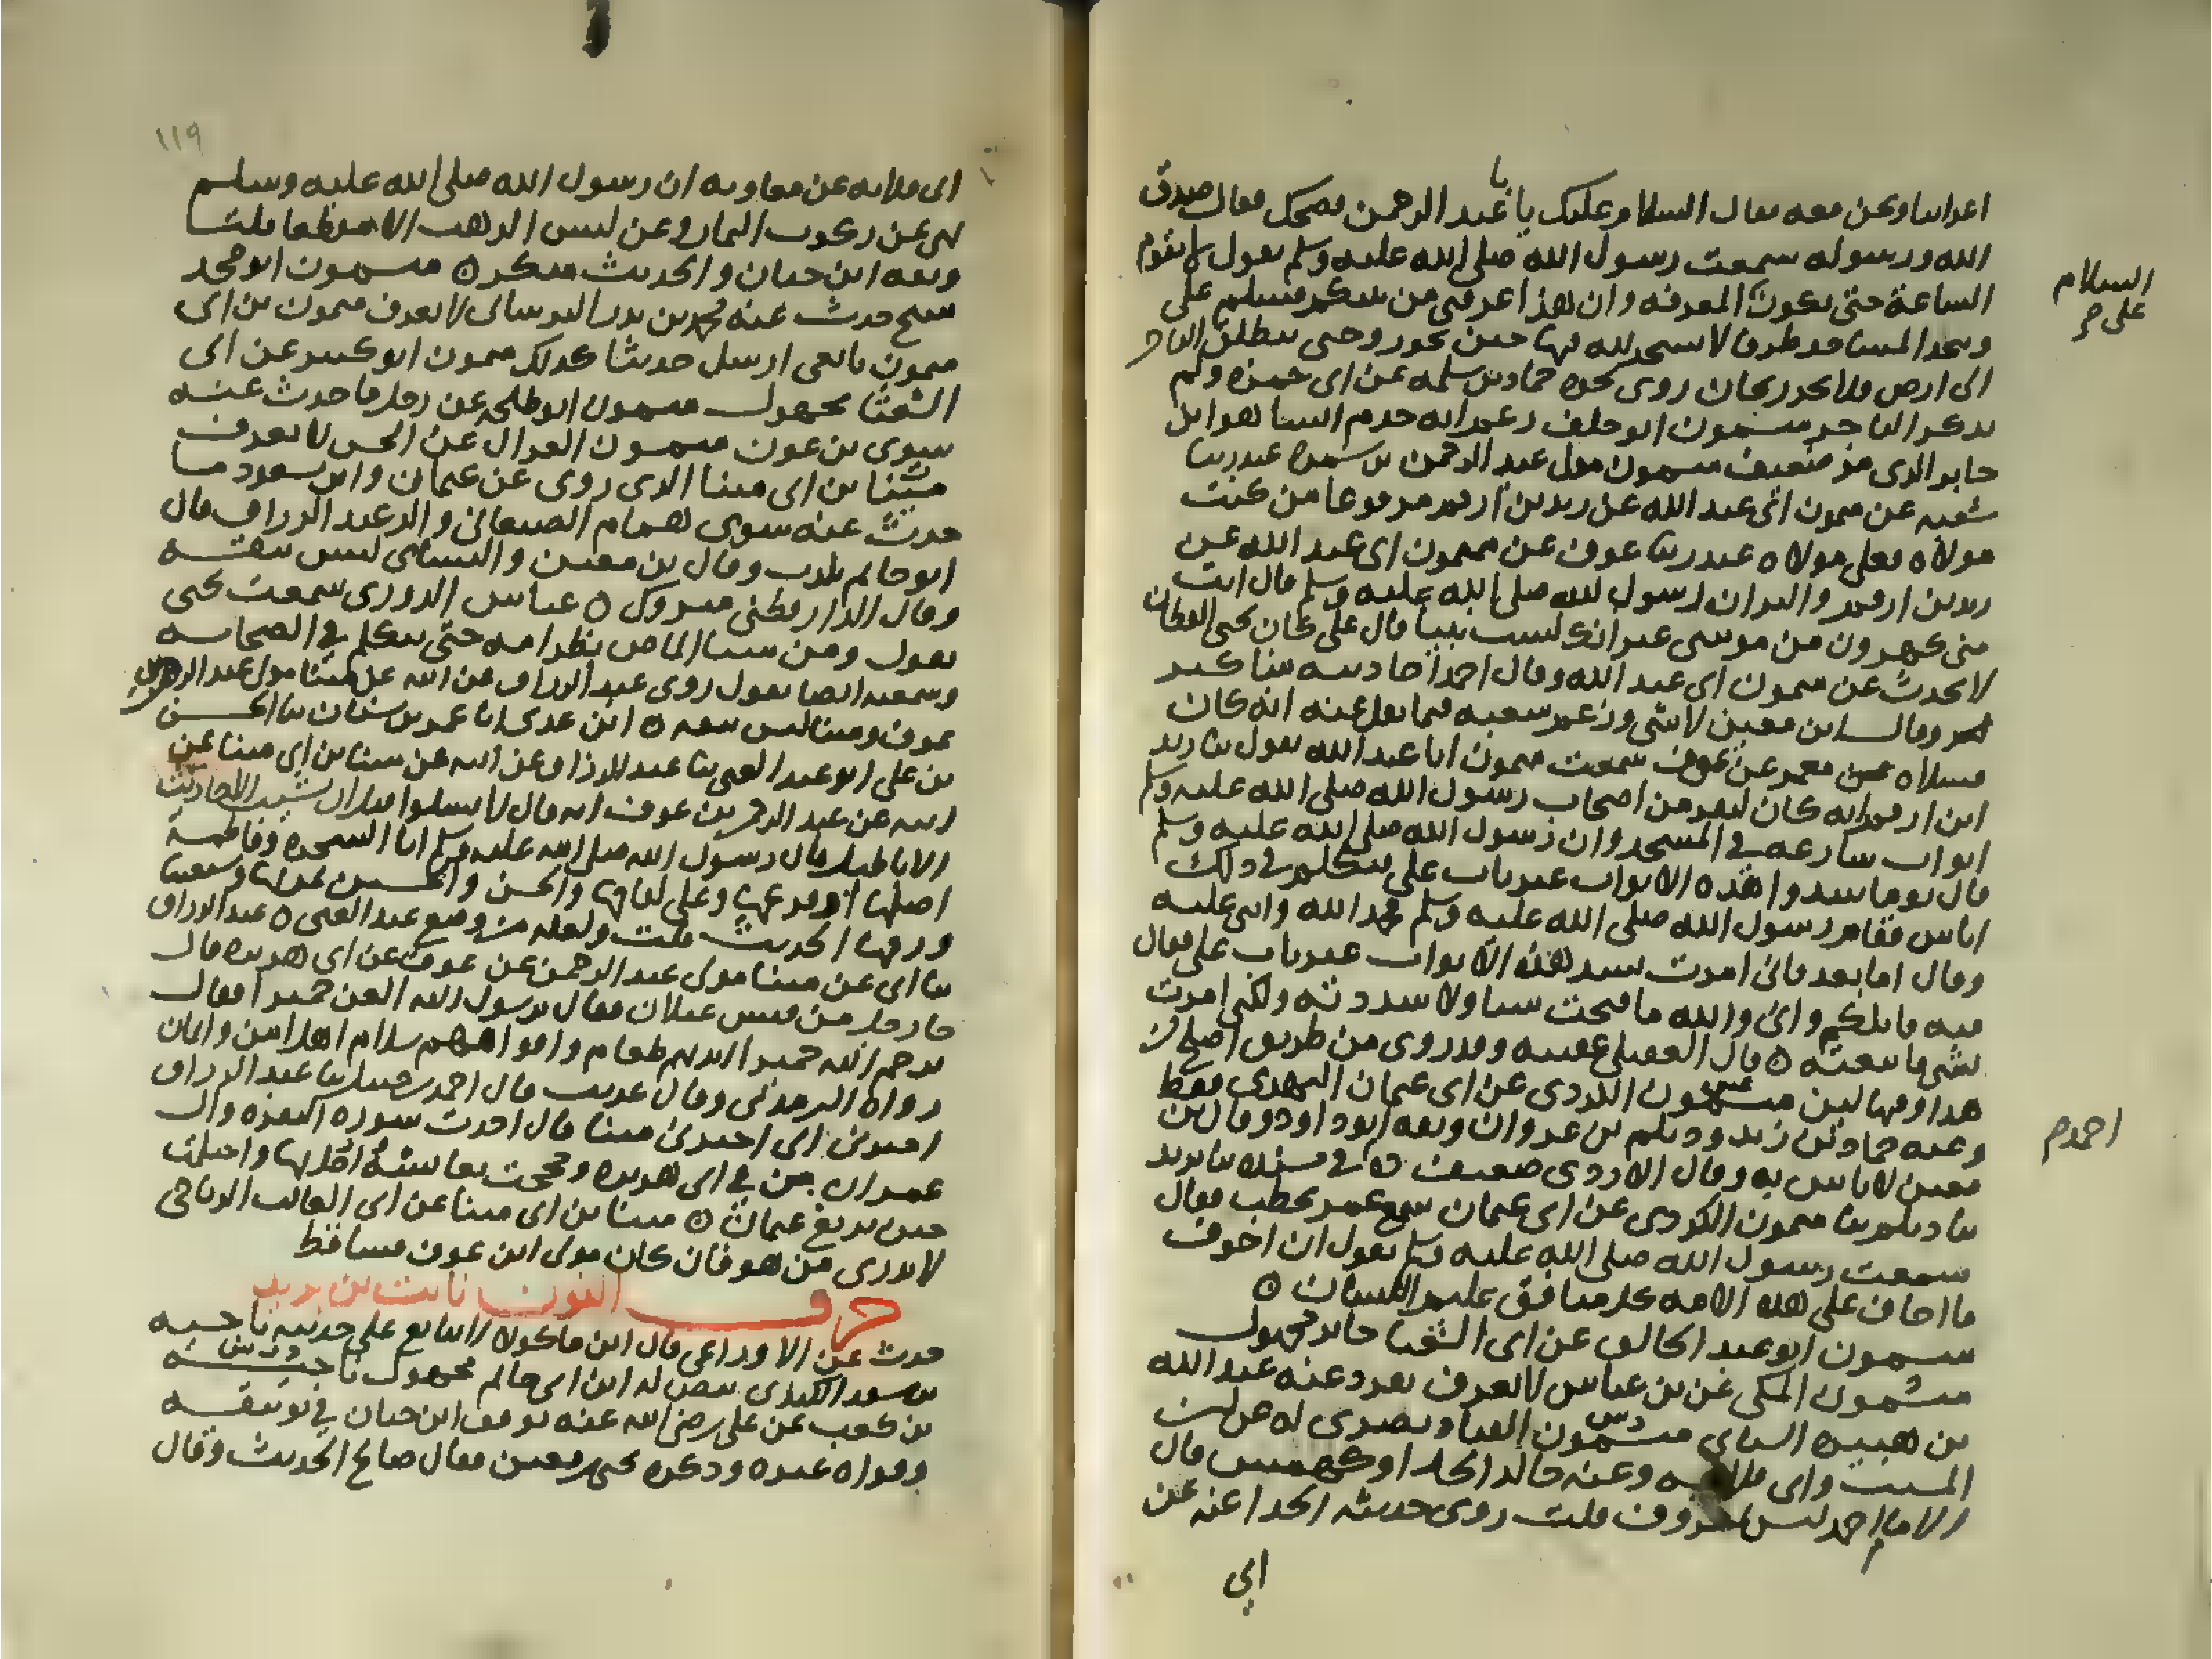 اعرابيا ونحن معه فقال السلام عليك يا با عبد الرحمن فضحك فقال صدق
الله ورسوله سمعت رسول الله صلى الله عليه وسلم يقول لا تقوم
الساعة حتى يكون المعرفة وان هذا عرفني من بينكم فسلم علي
وتتخذ المساجد طرقا لا يسجد لله فيها حتى وحتى ينطلق التاجر
الى ارض فلا يجد ربحا روى نحوه حماد بن سلمة عن ابي حمزة ولم
يذكر التاجر ميمون ابو خلف زعم انه خدم انسا هو ابن
جابر الذي مر ضعيف ميمون مولى عبد الرحمن بن سمرة غندر ثنا
شعبة عن ميمون ابي عبد الله عن زيد بن ارقم مرفوعا من كنت
مولاه فعلي مولاه غندر ثنا عوف عن ميمون ابي عبد الله عن
زيد بن ارقم والبراء ان رسول الله صلى الله عليه وسلم قال انت
مني كهرون من موسى غير انك لست بنبيا قال علي كان يحيى القطان
لا يحدث عن ميمون ابي عبد الله وقال احمد احاديثه مناكير
وقال ابن معين لا شي وزعم شعبة فيما نقل عنه انه كان
فسلا معمر عن عوف سمعت ميمون ابا عبد الله يقول ثنا زيد
ابن ارقم انه كان لنفر من اصحاب رسول الله صلى الله عليه وسلم
ابواب شارعة في المسجد وان رسول الله صلى الله عليه وسلم
قال يوما سدوا هذه الابواب غير باب علي فتكلم في ذلك
اناس فقام رسول الله صلى الله عليه وسلم فحمد الله واثنى عليه
وقال اما بعد فاني امرت بسد هذه الابواب غير باب علي فقال
فيه قائلكم واني والله ما فتحت شيا ولا سددته ولكن امرت
بشي فاتبعته قال العقيلي عقيبه وقد روي من طريق اصلح من
هذا وفيها لين ميمون الكردي عن ابي عثمان النهدي فقط
وعنه حماد بن زيد وديلم بن غزوان وثقه ابو داود وقال ابن
معين لا باس به وقال الازدي ضعيف في مسنده ثنا يزيد
ثنا ديلم ثنا ميمون الكردي عن ابي عثمان سمع عمر يخطب فقال
سمعت رسول الله صلى الله عليه وسلم يقول ان اخوف
ما اخاف على هذه الامة كل منافق عليم اللسان
ميمون ابو عبد الخالق عن ابي الشعثا جابر مجهول
ميمون المكي عن بن عباس لا يعرف تفرد عنه عبد الله
بن هبيرة السباي ميمون القناد بصري له عن ابن
المسيب وابي قلابة وعنه خالد الحذا وكهمس قال
الامام احمد ليس بمعروف قلت روى حديثه الحذا عنه عن
ابي
السلام
على
احمد
١١٩
ابي قلابة عن معاوية ان رسول الله صلى الله عليه وسلم
نهى عن ركوب النمار وعن لبس الذهب الا مقطعا قلت
وثقه ابن حبان والحديث منكر ميمون ابو محمد
شيخ حدث عنه محمد بن بكر البرساني لا يعرف ميمون بن ابي
ميمون تابعي ارسل حديثا كذلك ميمون ابو كثير عن ابي
الشعثا مجهول ميمون ابو طلحة عن رجل ما حدث عنه
سوى بن عون ميمون الغزال عن الحسن لا يعرف
مينا بن ابي مينا الذي روى عن عثمان وابن مسعود ما
حدث عنه سوى همام الصنعاني والد عبد الرزاق قال
ابو حاتم يكذب وقال بن معين والنسائي ليس بثقة
وقال الدارقطني متروك عباس الدوري سمعت يحيى
يقول ومن مينا حتى يتكلم في الصحابة
وسمعته ايضا يقول روى عبد الرزاق عن ابيه عن مينا مولى عبد الرحمن بن
عوف ومينا ليس بثقة ابن عدي انا عمر بن سنان ثنا الحسن
بن علي ابو عبد الغني ثنا عبد الرزاق عن ابيه عن مينا بن ابي مينا عن
ابيه عن عبد الرحمن بن عوف انه قال لا تسلوا قبل ان تشيب الاحاديث
الاباطيل قال رسول الله صلى الله عليه وسلم انا الشجرة وفاطمة
اصلها او فرعها وعلي لقاحها والحسن والحسين ثمرتها وشيعتنا
ورقها الحديث قلت ولعله من وضع عبد الغني عبد الرزاق
ثنا ابي عن مينا مولى عبد الرحمن بن عوف عن ابي هريرة قال
جا رجل من قيس عيلان فقال يرسول الله العن حميرا فقال
يرحم الله حمير ايديهم طعام وافواههم سلام اهل امن وايمان
رواه الترمذي وقال غريب قال احمد بن حنبل ثنا عبد الرزاق
اخبرني ابي اخبرني مينا قال اخذت سورة البقرة وال
عمران من في ابي هريرة
حين بويع عثمان مينا بن ابي مينا عن ابي العالية الرياحي
لا يدرى من هو فان كان مولى ابن عوف فساقط
حرف النون نابت بن يزيد
حدث عن الاوزاعي قال ابن ماكولا لا يتابع على حديثه ناجية
بن سعد الكندي بيض له ابن ابي حاتم مجهول ناجية
بن كعب عن علي رضي الله عنه توقف ابن حبان في توثيقه
وقواه غيره وذكره يحيى بن معين فقال صالح الحديث وقال